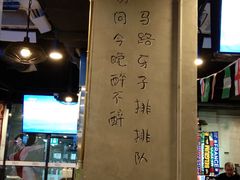 马路牙子排排队
问今晚醉不醉
FRANCE